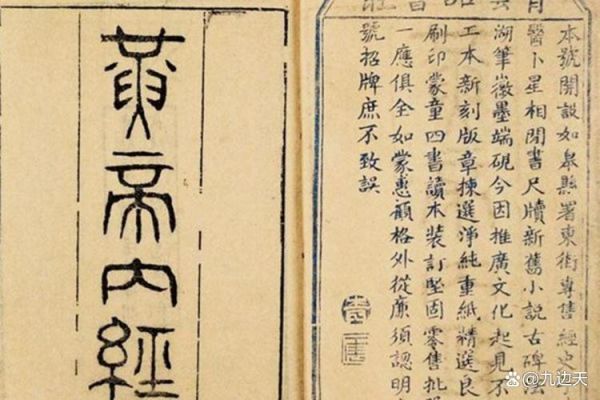 本號開設如皋縣署東街專售經史
醫卜星相閒書尺牘新舊小說古碑法
湖筆徽墨端硯今因推廣文化起見不
工本新刻版章揀選淨純重紙精選良
刷印蒙童四書讀本裝訂堅固零售批
一應俱全如蒙惠顧格外從廉須認明
號招牌庶不致誤
黃帝內經
@九边天